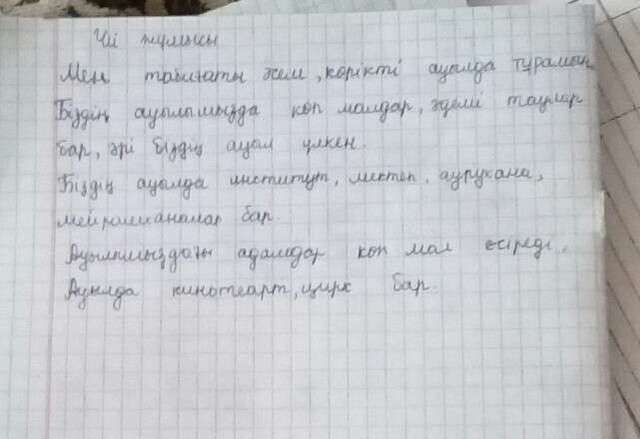 Үй жұмысы
Мен табиғаты әсем, көрікті ауылда тұрамын.
Біздің ауылымызда көп малдар, әдемі таулар
бар, әрі біздің ауыл үлкен.
Біздің ауылда институт, мектеп, аурухана,
мейрамханалар бар.
Ауылымыздағы адамдар көп мал өсіреді.
Ауылда кинотеарт, цирк бар.